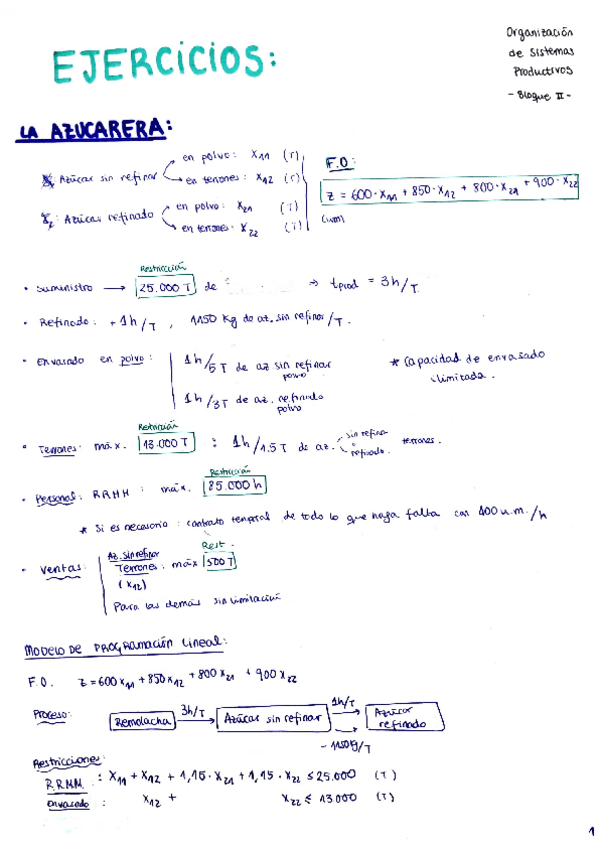 Organización
de Sistemas
Productivos
- Bloque II -
EJERCICIOS:
LA AZUCARERA:
Azúcar sin refinar
en polvo: X11 (T)
en terrones: X12 (T)
Azúcar refinado
en polvo: X21 (T)
en terrones: X22 (T)
F.O:
z = 600·X11 + 850·X12 + 800·X21 + 900·X22
(um)
Restricción
· Suministro → 25.000 T de → tprod = 3h/T.
· Refinado: + 1h/T, 1150 Kg de az. sin refinar/T.
· Envasado en polvo:
1h/5T de az sin refinar
polvo
1h/3T de az. refinado
polvo
* Capacidad de envasado
ilimitada.
Restricción
· Terrones: máx. 13.000 T : 1h/1.5T de az. sin refinar
refinado. terrones.
Restricción
· Personal: RRHH: máx. 85.000 h
* Si es necesario: contrato temporal de todo lo que haga falta con 400 u.m./h
Rest.
· Ventas:
Az. sin refinar
Terrones: máx 500T
(X12)
Para las demás sin limitación
MODELO DE PROGRAMACIÓN LINEAL:
F.O. z = 600 X11 + 850 X12 + 800 X21 + 900 X22
Proceso: Remolacha 3h/T → Azúcar sin refinar 1h/T → Azúcar refinado
- 1150Kg/T
Restricciones:
R.R.M.M.: X11 + X12 + 1,15·X21 + 1,15·X22 ≤ 25.000 (T)
Envasado: X12 + X22 ≤ 13.000 (T)
1